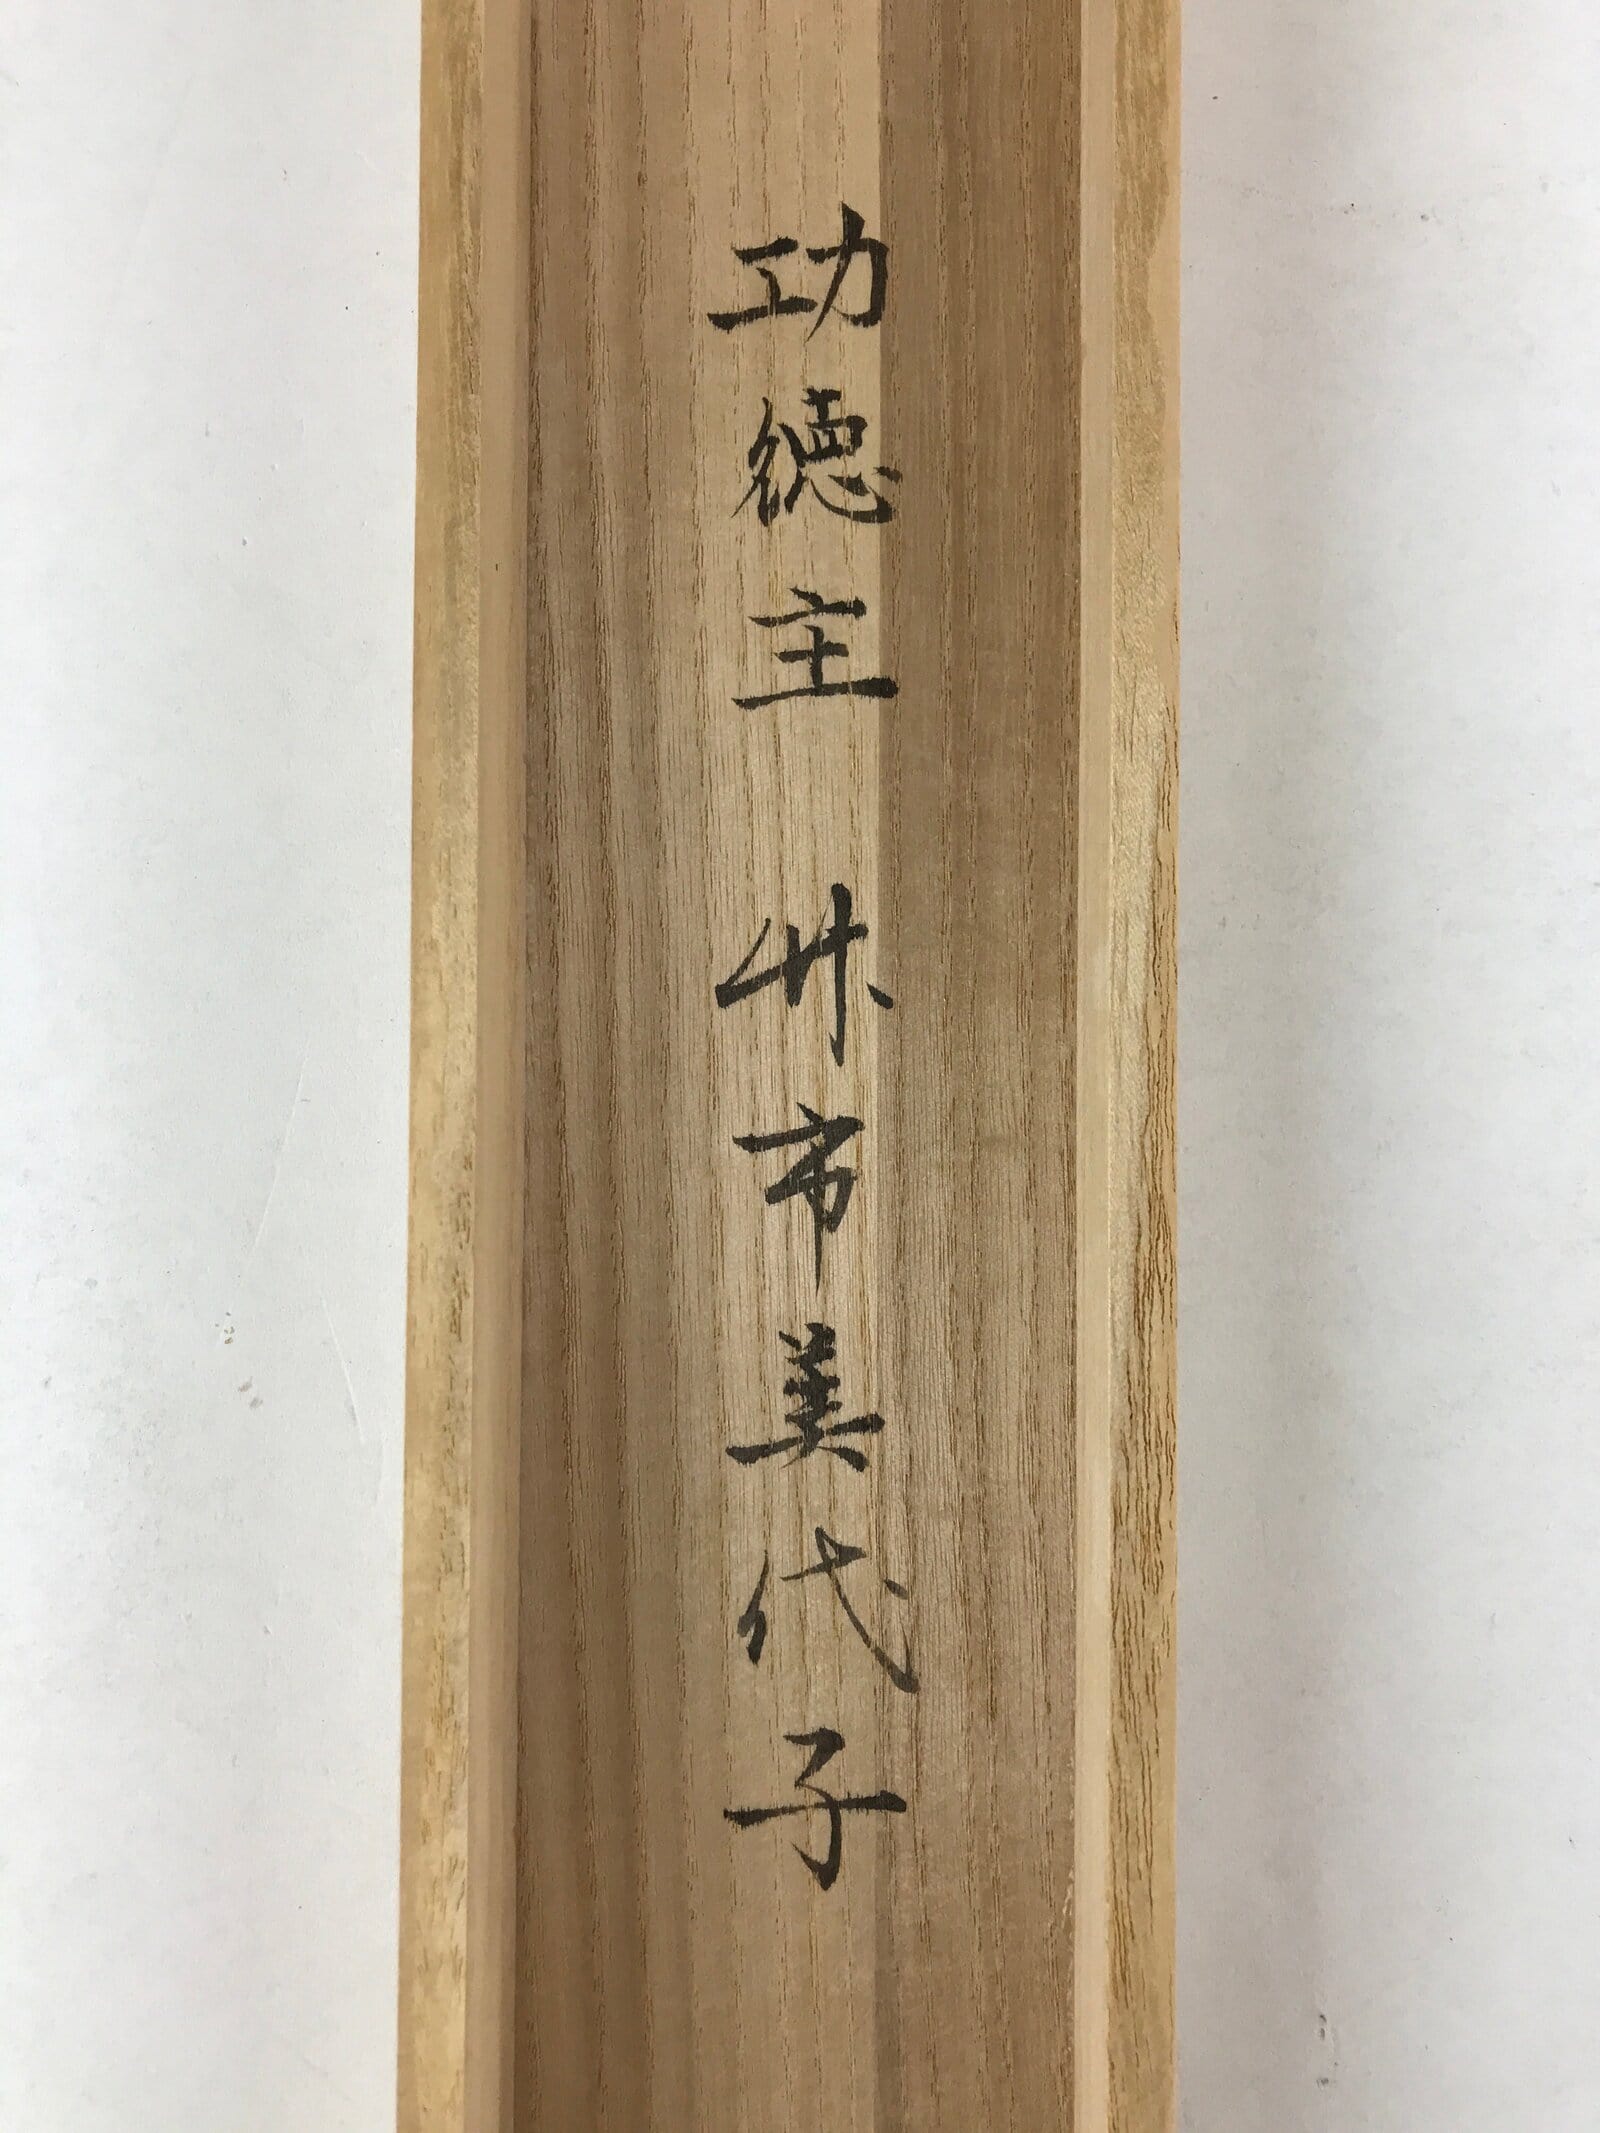 功徳主 竹市美代子